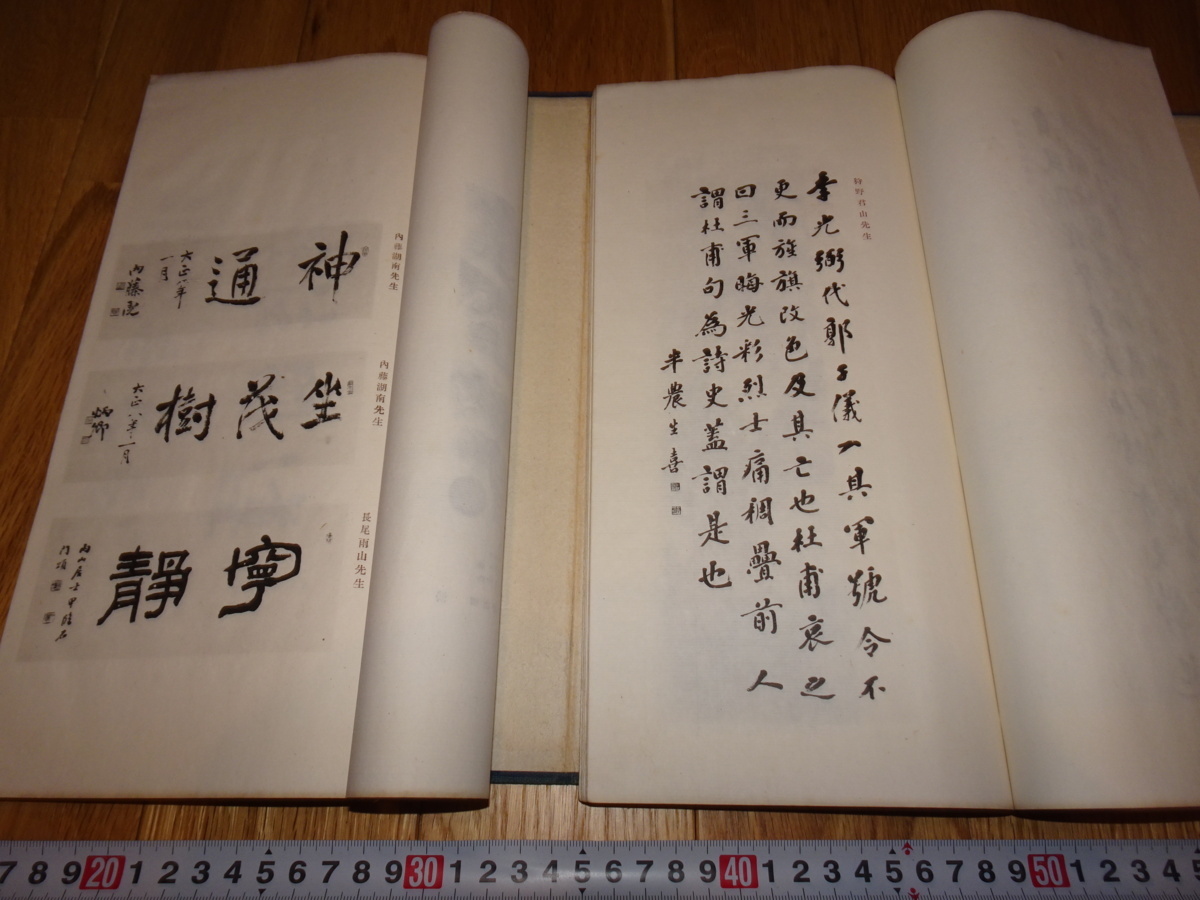 狩野君山先生
李光弼代郭子儀入其軍號令不
更而旌旗改色及其亡也杜甫哀之
曰三軍晦光彩烈士痛稠疊前人
謂杜甫句為詩史蓋謂是也
半農生喜
內藤湖南先生
神通
大正八年
一月
內藤虎
內藤湖南先生
坐茂樹
大正八年一月
炳卿
長尾雨山先生
寧靜
雨山居士甲
7 8 9 20 1 2 3 4 5 6 7 8 9 30 1 2 3 4 5 6 7 8 9 40 1 2 3 4 5 6 7 8 9 50 1 2 3 4